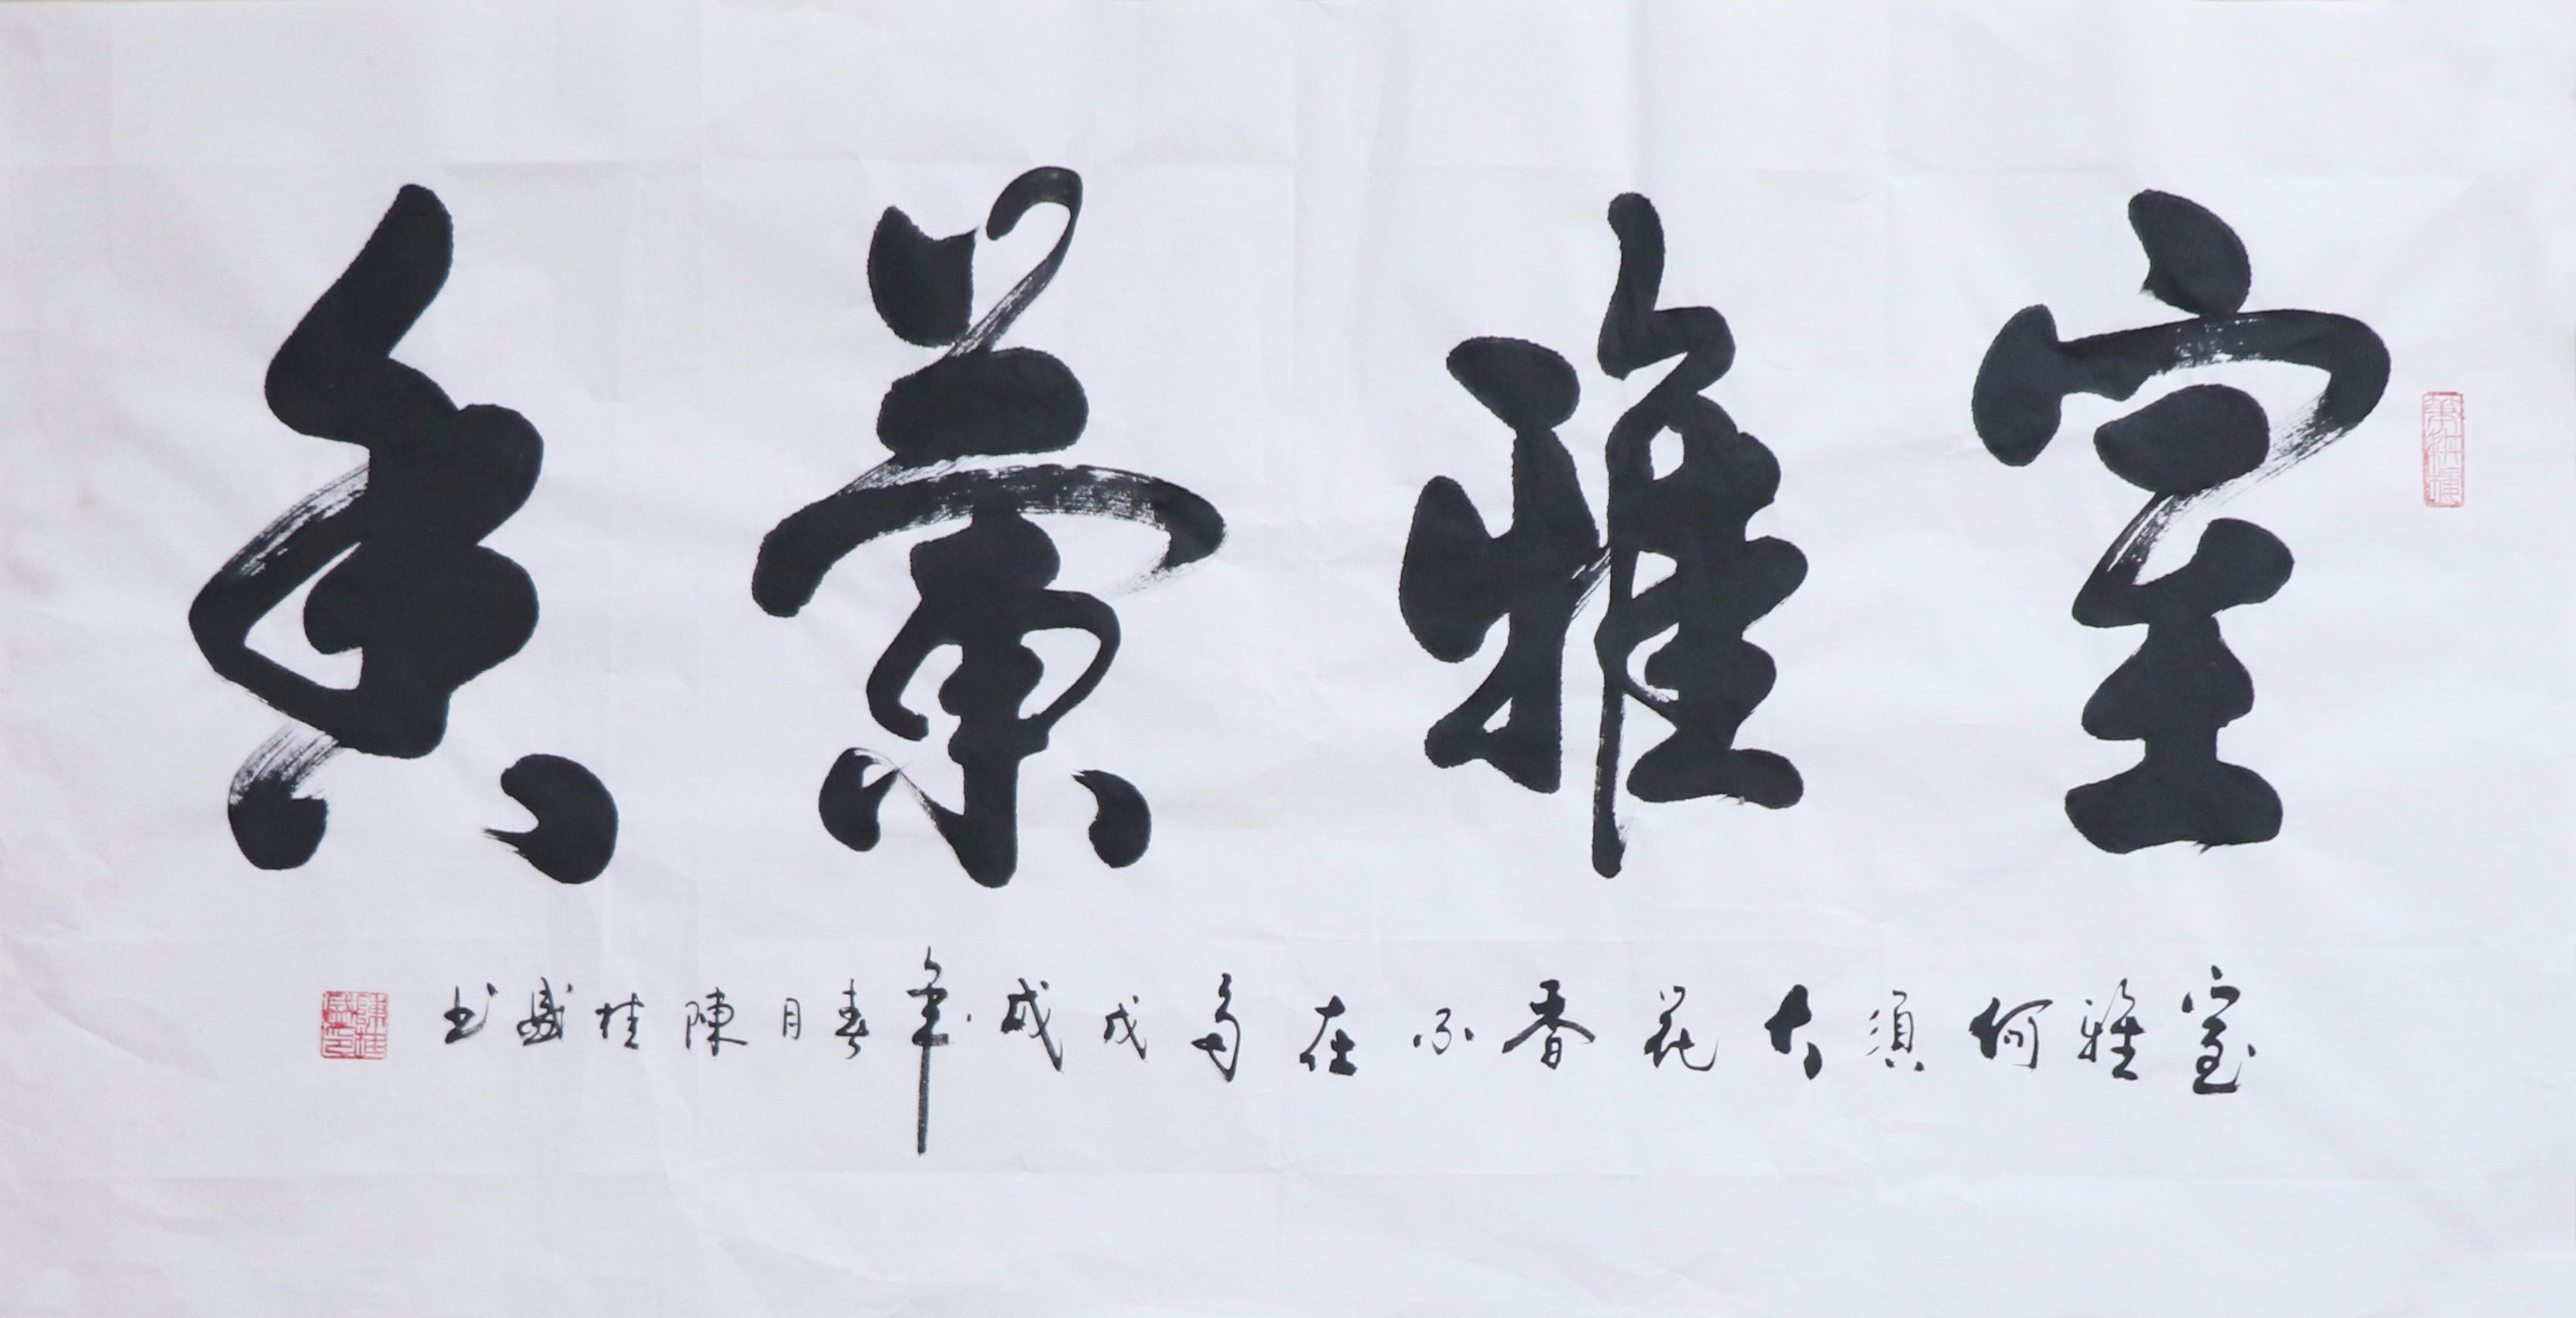 室雅蘭香
室雅何須大花香不在多戊戌年春月陳桂盛书